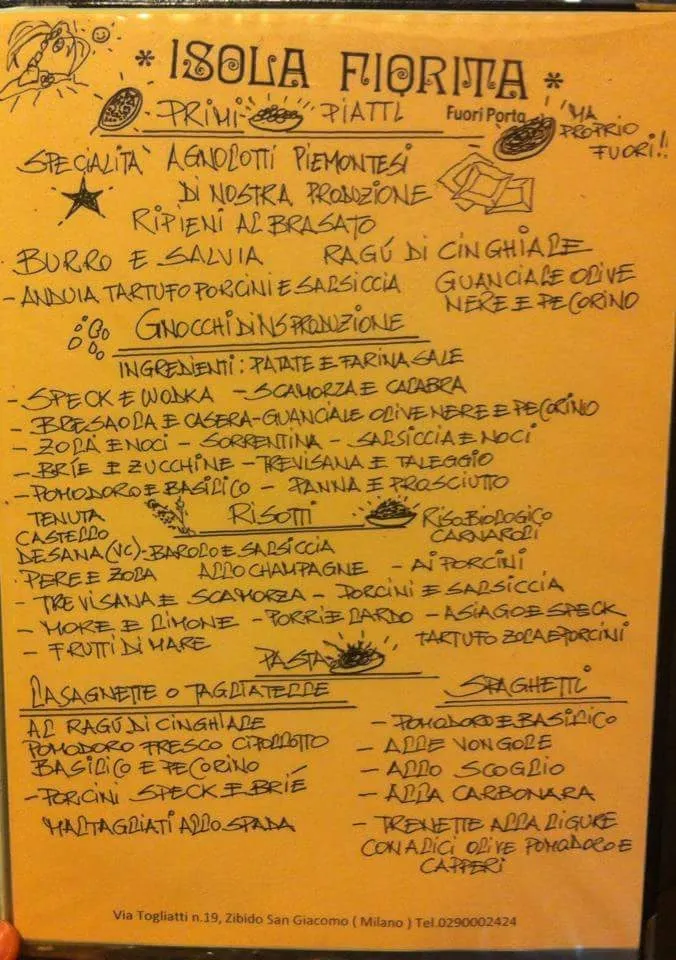 * ISOLA FIORITA *
PRIMI PIATTI
Fuori Porta
MA PROPRIO FUORI!!
SPECIALITA' AGNOLOTTI PIEMONTESI
DI NOSTRA PRODUZIONE
RIPIENI AL BRASATO
BURRO E SALVIA RAGÚ DI CINGHIALE
- ANDUIA TARTUFO PORCINI E SALSICCIA GUANCIALE OLIVE
NERE E PECORINO
GNOCCHI DI NS PRODUZIONE
INGREDIENTI: PATATE E FARINA SALE
- SPECK E WODKA - SCAMORZA E CALABRA
- BRESAOLA E CASERA - GUANCIALE OLIVE NERE E PECORINO
- ZOLA E NOCI - SORRENTINA - SALSICCIA E NOCI
- BRIE E ZUCCHINE - TREVISANA E TALEGGIO
- POMODORO E BASILICO - PANNA E PROSCIUTTO
RISOTTI
TENUTA
CASTELLO
DESANA (VC)
RISO BIOLOGICO
CARNAROLI
- BAROLO E SALSICCIA
PERE E ZOLA ALLO CHAMPAGNE - AI PORCINI
- TREVISANA E SCAMORZA - PORCINI E SALSICCIA
- MORE E LIMONE - PORRI E LARDO - ASIAGO E SPECK
- FRUTTI DI MARE TARTUFO ZOLA E PORCINI
PASTA
LASAGNETTE O TAGLIATELLE
AL RAGÚ DI CINGHIALE
POMODORO FRESCO CIPOLLOTTO
BASILICO E PECORINO
- PORCINI SPECK E BRIÉ
MALTAGLIATI ALLO SPADA
SPAGHETTI
- POMODORO E BASILICO
- ALLE VONGOLE
- ALLO SCOGLIO
- ALLA CARBONARA
- TRENETTE ALLA LIGURE
CON ALICI OLIVE POMODORO E
CAPPERI
Via Togliatti n.19, Zibido San Giacomo ( Milano ) Tel.0290002424